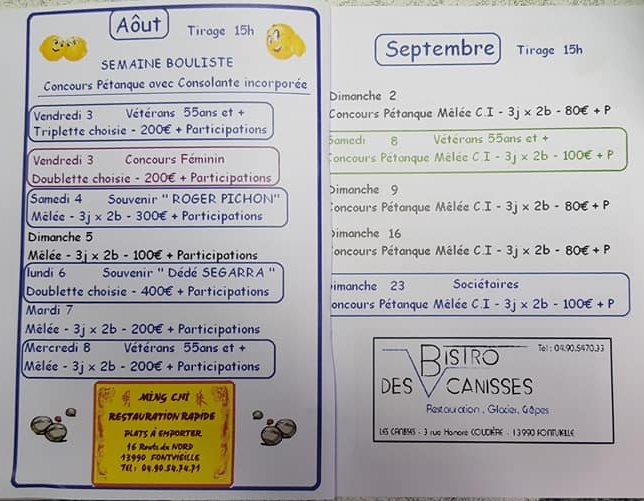 Aôut
Tirage 15h
SEMAINE BOULISTE
Concours Pétanque avec Consolante incorporée
Vendredi 3 Vétérans 55ans et +
Triplette choisie - 200€ + Participations
Vendredi 3 Concours Féminin
Doublette choisie - 200€ + Participations
Samedi 4 Souvenir " ROGER PICHON"
Mêlée - 3j x 2b - 300€ + Participations
Dimanche 5
Mêlée - 3j x 2b - 100€ + Participations
lundi 6 Souvenir " Dédé SEGARRA "
Doublette choisie - 400€ + Participations
Mardi 7
Mêlée - 3j x 2b - 200€ + Participations
Mercredi 8 Vétérans 55ans et +
Mêlée - 3j x 2b - 200€ + Participations
MING CHI
RESTAURATION RAPIDE
PLATS À EMPORTER
16 Route du NORD
13990 FONTVIEILLE
Tél: 04.90.54.74.71
Septembre
Tirage 15h
Dimanche 2
Concours Pétanque Mêlée C.I - 3j x 2b - 80€ + P
Samedi 8 Vétérans 55ans et +
Concours Pétanque Mêlée C.I - 3j x 2b - 100€ + P
Dimanche 9
Concours Pétanque Mêlée C.I - 3j x 2b - 80€ + P
Dimanche 16
Concours Pétanque Mêlée C.I - 3j x 2b - 80€ + P
imanche 23 Sociétaires
oncours Pétanque Mêlée C.I - 3j x 2b - 100€ + P
Tel : 04.90.54.70.33
BISTRO
DES CANISSES
Restauration, Glacier, Crêpes
LES CANISSES - 3 rue Honoré - 13990